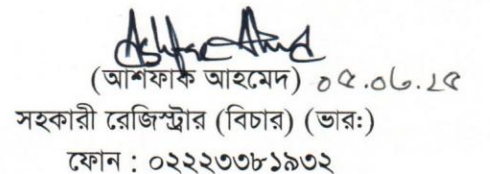 Ashfaq Ahmed
(আশফাক আহমেদ) ০৫.০৬.২৫
সহকারী রেজিস্ট্রার (বিচার) (ভার:)
ফোন : ০২২২৩৩৮১৯৩২